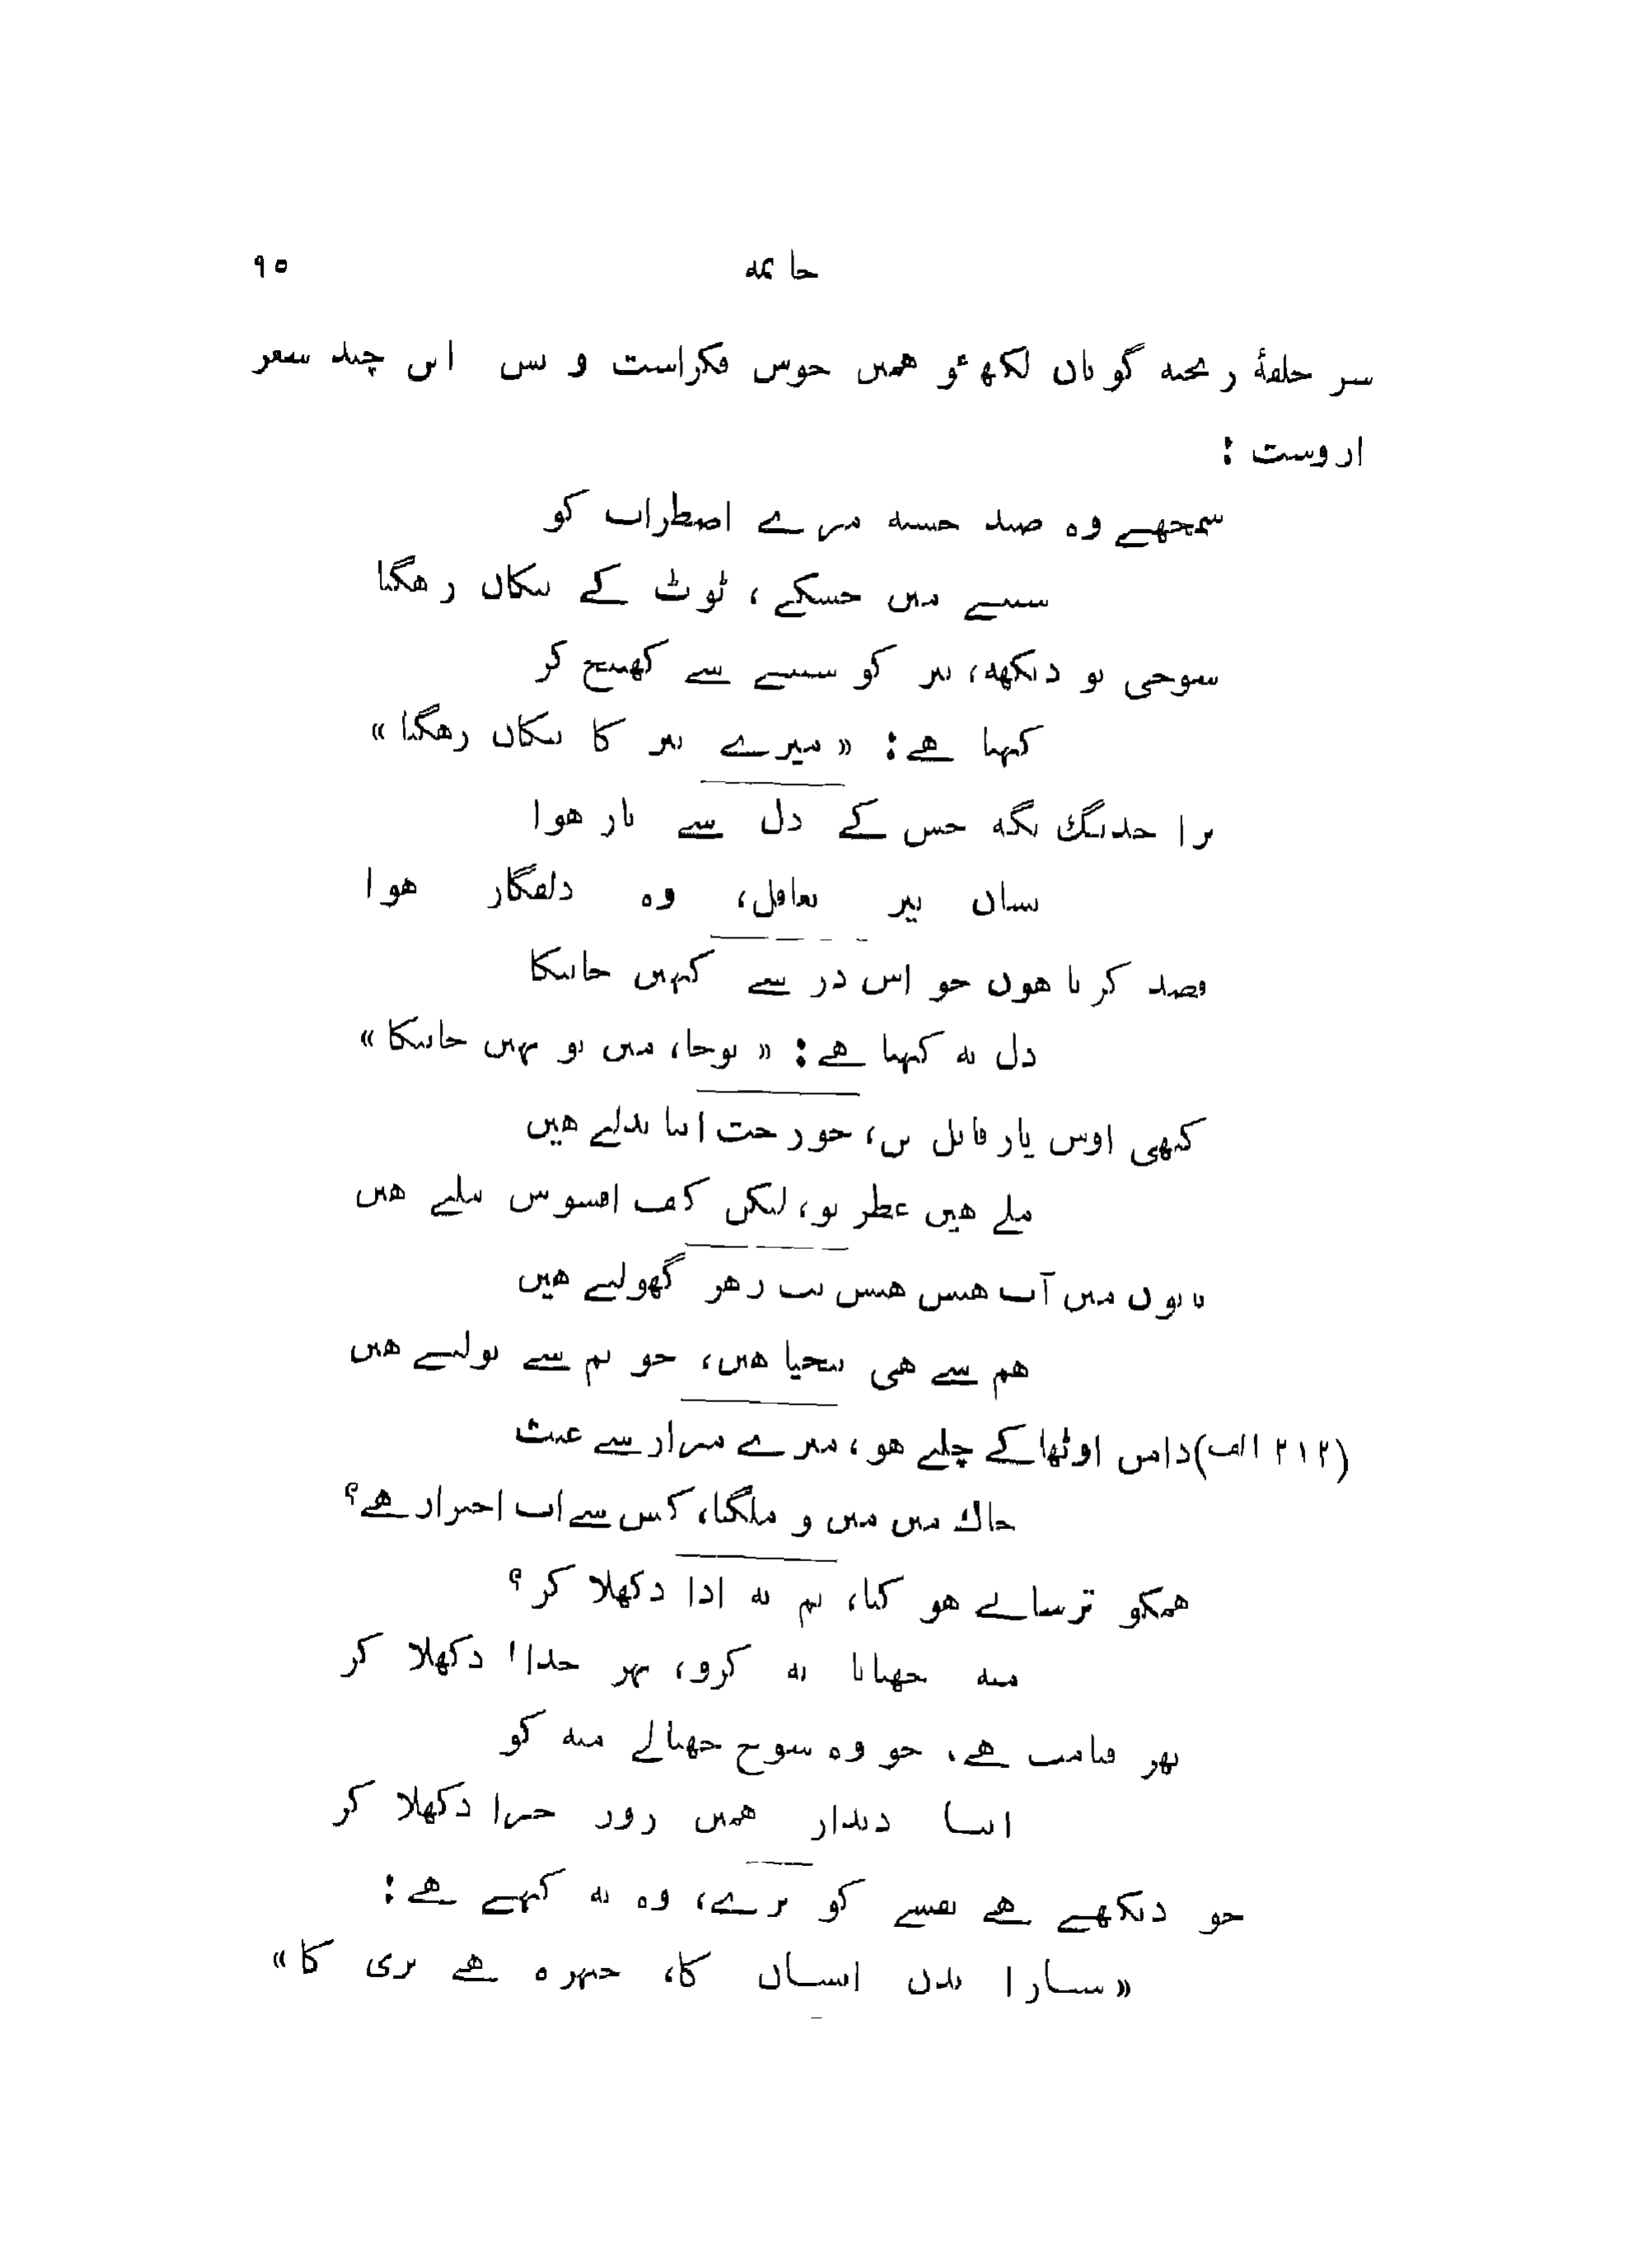 خاتمہ ۹۵
سر حلقۂ ریختہ گویان لکھنؤ همین خوش فکراست و بس این چند شعر
ازوست :
سمجھے وہ صید خستہ مرے اضطراب کو
سینے میں جسکے، ٹوٹ کے پیکاں رهگیا
سوجی تو دیکھہ، تیر کو سینے سے کھینچ کر
کہتا ھے: «میرے تیر کا پیکاں رهگیا»
ترا خدنگ نگہ جس کے دل سے پار ھوا
بسان تیر تغافل، وہ دلفگار ھوا
قصد کرتا ھوں جو اس در سے کہیں جانیکا
دل یہ کہتا ھے: «توجا، میں تو نہیں جانیکا»
کبھی اوس یار قاتل بن، جو رخت اپنا بدلتے ھیں
ملے ھیں عطر تو، لیکن کف افسوس ملتے ھیں
باتوں میں آپ ھنس ھنس نت زھر گھولتے ھیں
ھم سے ھی بیحیا ھیں، جو تم سے بولتے ھیں
(۲۱۲ الف) دامن اوٹھا کے چلتے ھو، میرے مزار سے عبث
خاك میں میں و ملگیا، کس سے اب احتراز ھے؟
ھمکو ترساتے ھو کیا، تم یہ ادا دکھلا کر؟
منہ چھپانا نہ کرو، بہر خدا! دکھلا کر
پھر قیامت ھے، جو وہ شوخ چھپالے منہ کو
اپنا دیدار ھمیں روز جزا دکھلا کر
جو دیکھے ھے نقشے کو ترے، وہ یہ کہے ھے:
«سارا بدن انسان کا، چہرہ ھے پری کا»